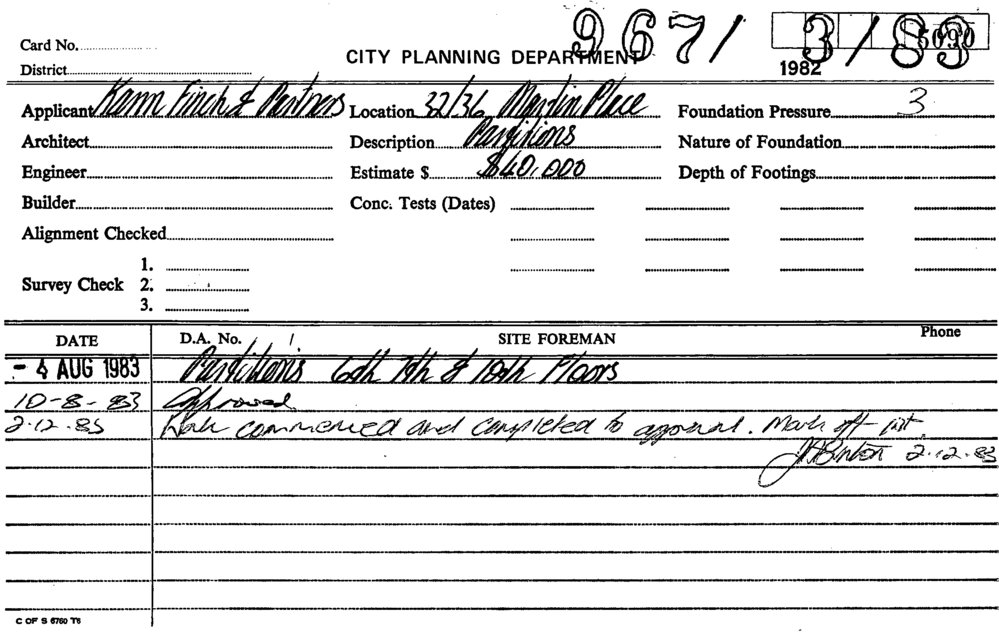 9671 3/83
5090
Card No.
CITY PLANNING DEPARTMENT
1982
District
Applicant Kann Finch & Partners Location 32/36 Martin Place Foundation Pressure 3
Architect Description Partitions Nature of Foundation
Engineer Estimate $ $40,000 Depth of Footings
Builder Conc. Tests (Dates)
Alignment Checked
1.
Survey Check 2.
3.
DATE D.A. No. SITE FOREMAN Phone
- 4 AUG 1983 Partitions 6th 7th & 10th Floors
10-8-83 Approved
2.12.83 Work commenced and completed to approval. Mark off list.
2.12.83
C OF S 6760 T6